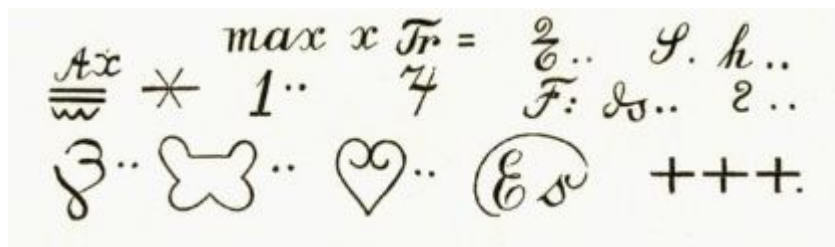 max x Tr = 2 E.. S. h..
Ax * 1.. 4 F: ds.. 2..
3.. .. .. Es +++.